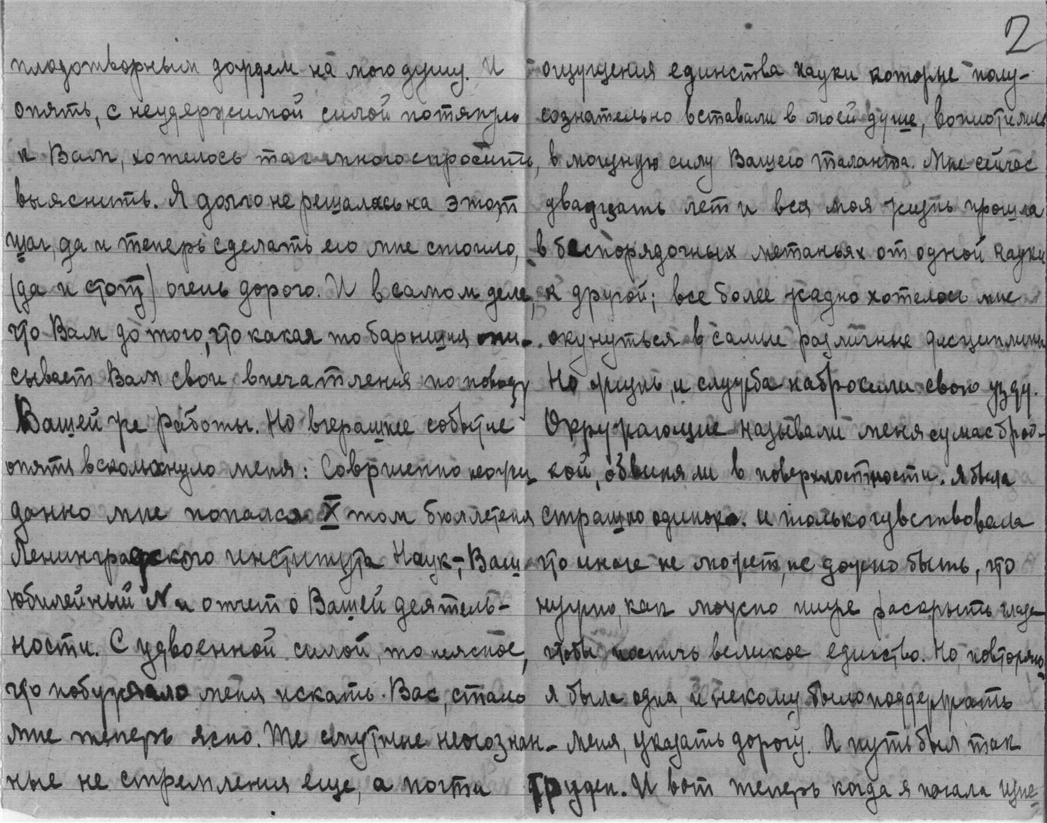 2
плодотворным дождем на мою душу. И
опять, с неудержимой силой потянуло
к Вам, хотелось так много спросить,
выяснить. Я долго не решалась на этот
шаг, да и теперь сделать его мне стоило,
(да и стоит) очень дорого. И в самом деле,
что Вам до того, что какая то барышня опи-
сывает Вам свои впечатления по поводу
Вашей же работы. Но вчерашнее событие
опять всколыхнуло меня: Совершенно неожи
данно мне попался X том бюллетеня
Ленинградского института Наук,- Ваш
юбилейный № и отчет о Вашей деятель-
ности. С удвоенной силой, то неясное,
что побуждало меня искать Вас, стало
мне теперь ясно. Те смутные неосознан-
ные не стремления еще, а почти
ощущения единства науки которые полу-
сознательно вставали в моей душе, воплотились
в мощную силу Вашего таланта. Мне сейчас
двадцать лет и вся моя жизнь прошла
в беспорядочных метаньях от одной науки
к другой; все более жадно хотелось мне
окунуться в самые различные дисциплины
Но жизнь, и служба набросили свою узду.
Окружающие называли меня сумасброд-
кой, обвиняли в поверхностности. Я была
страшно одинока. и только чувствовала
что иначе не может, не должно быть, что
нужно, как можно шире раскрыть глаза
чтобы постичь великое единство. Но повторяю,
я была одна, и некому было поддержать
меня, указать дорогу. А путь был так
труден. И вот теперь когда я начала